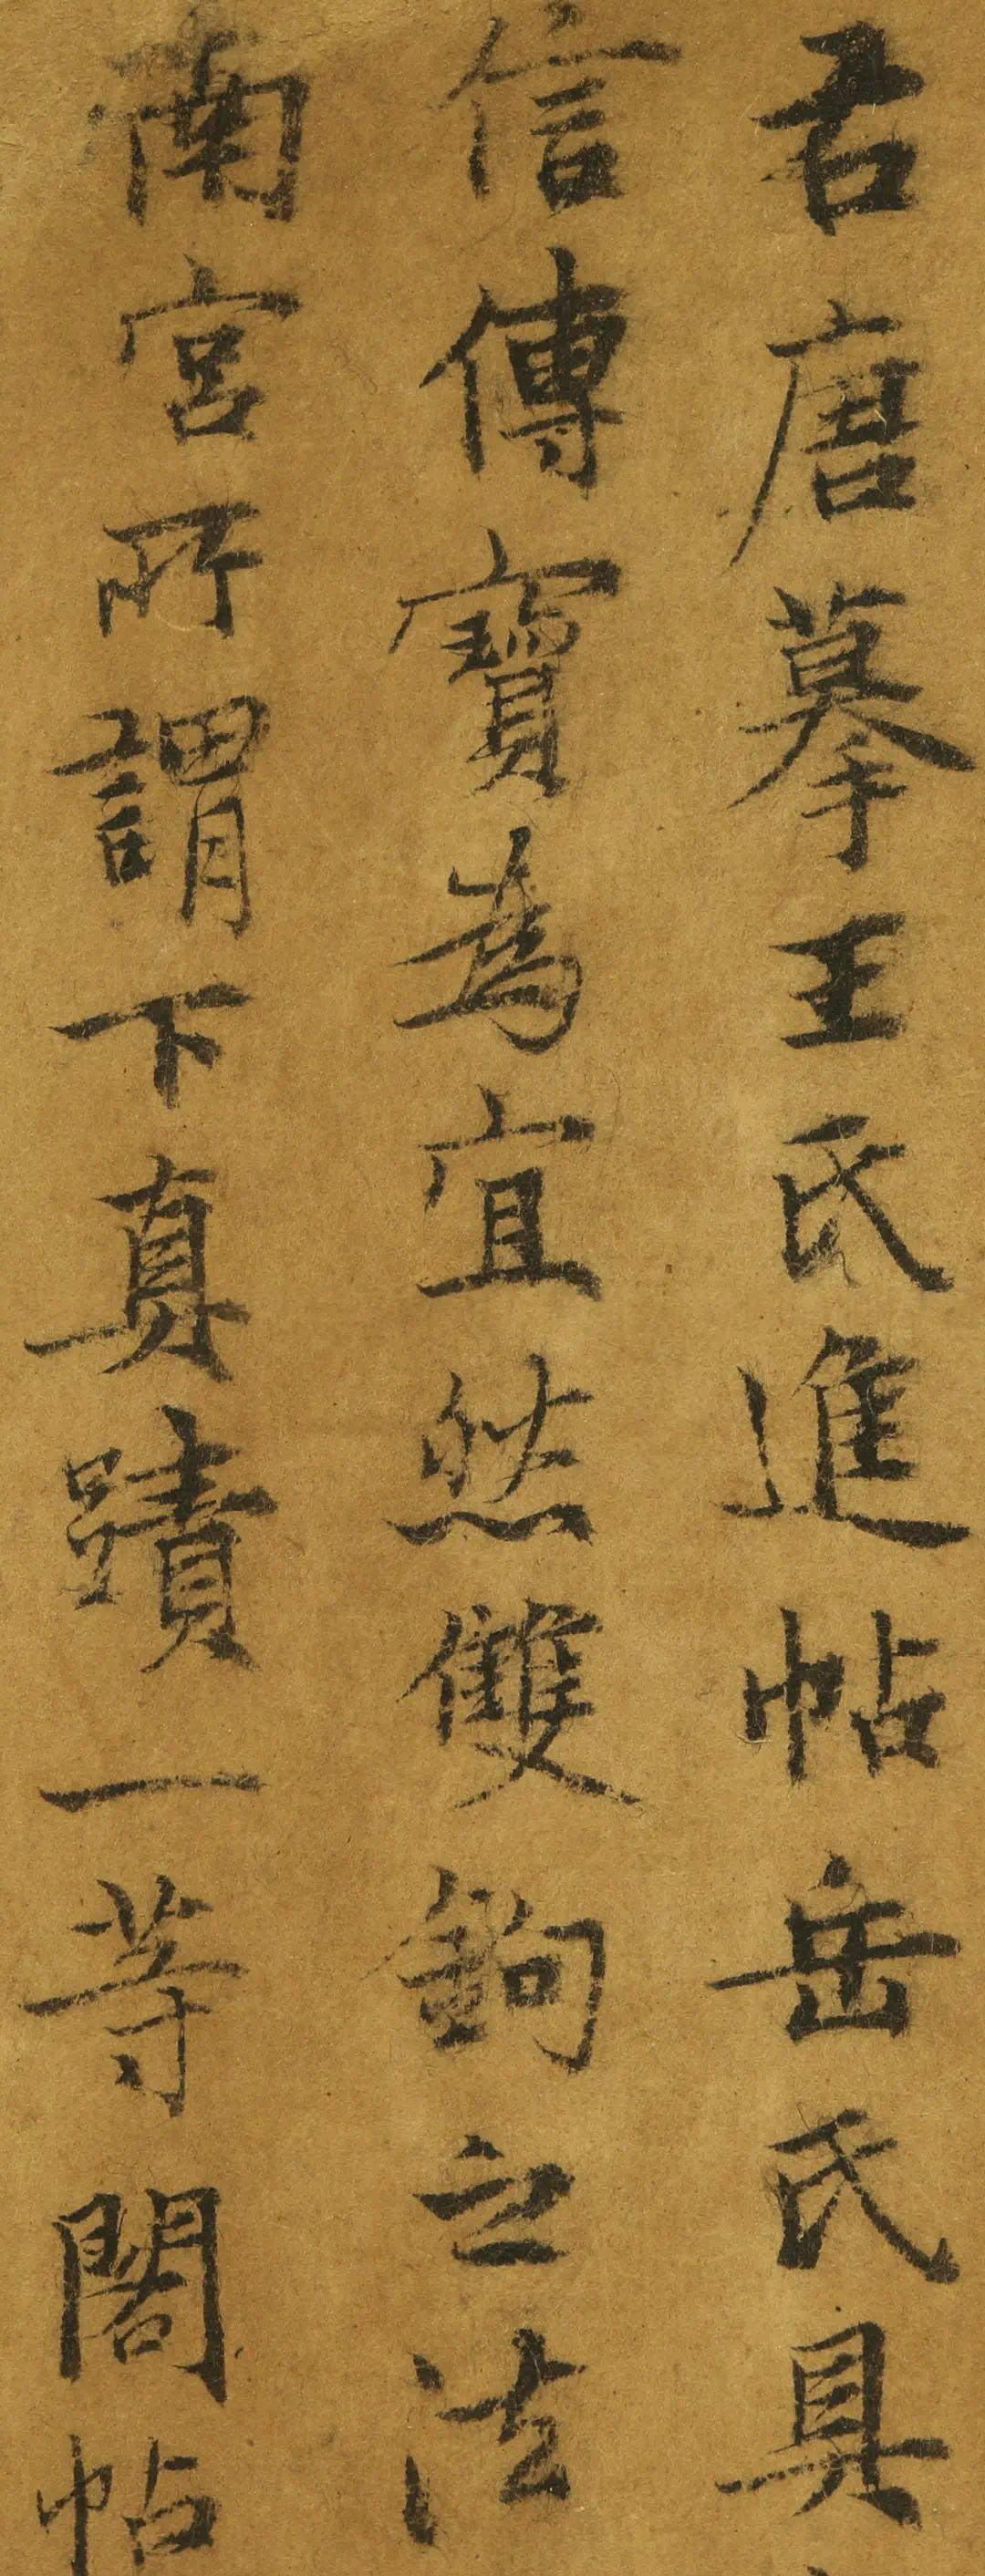 右唐摹王氏進帖岳氏具
信傳寶為宜然雙鉤之法
南宮所謂下真蹟一等閣帖